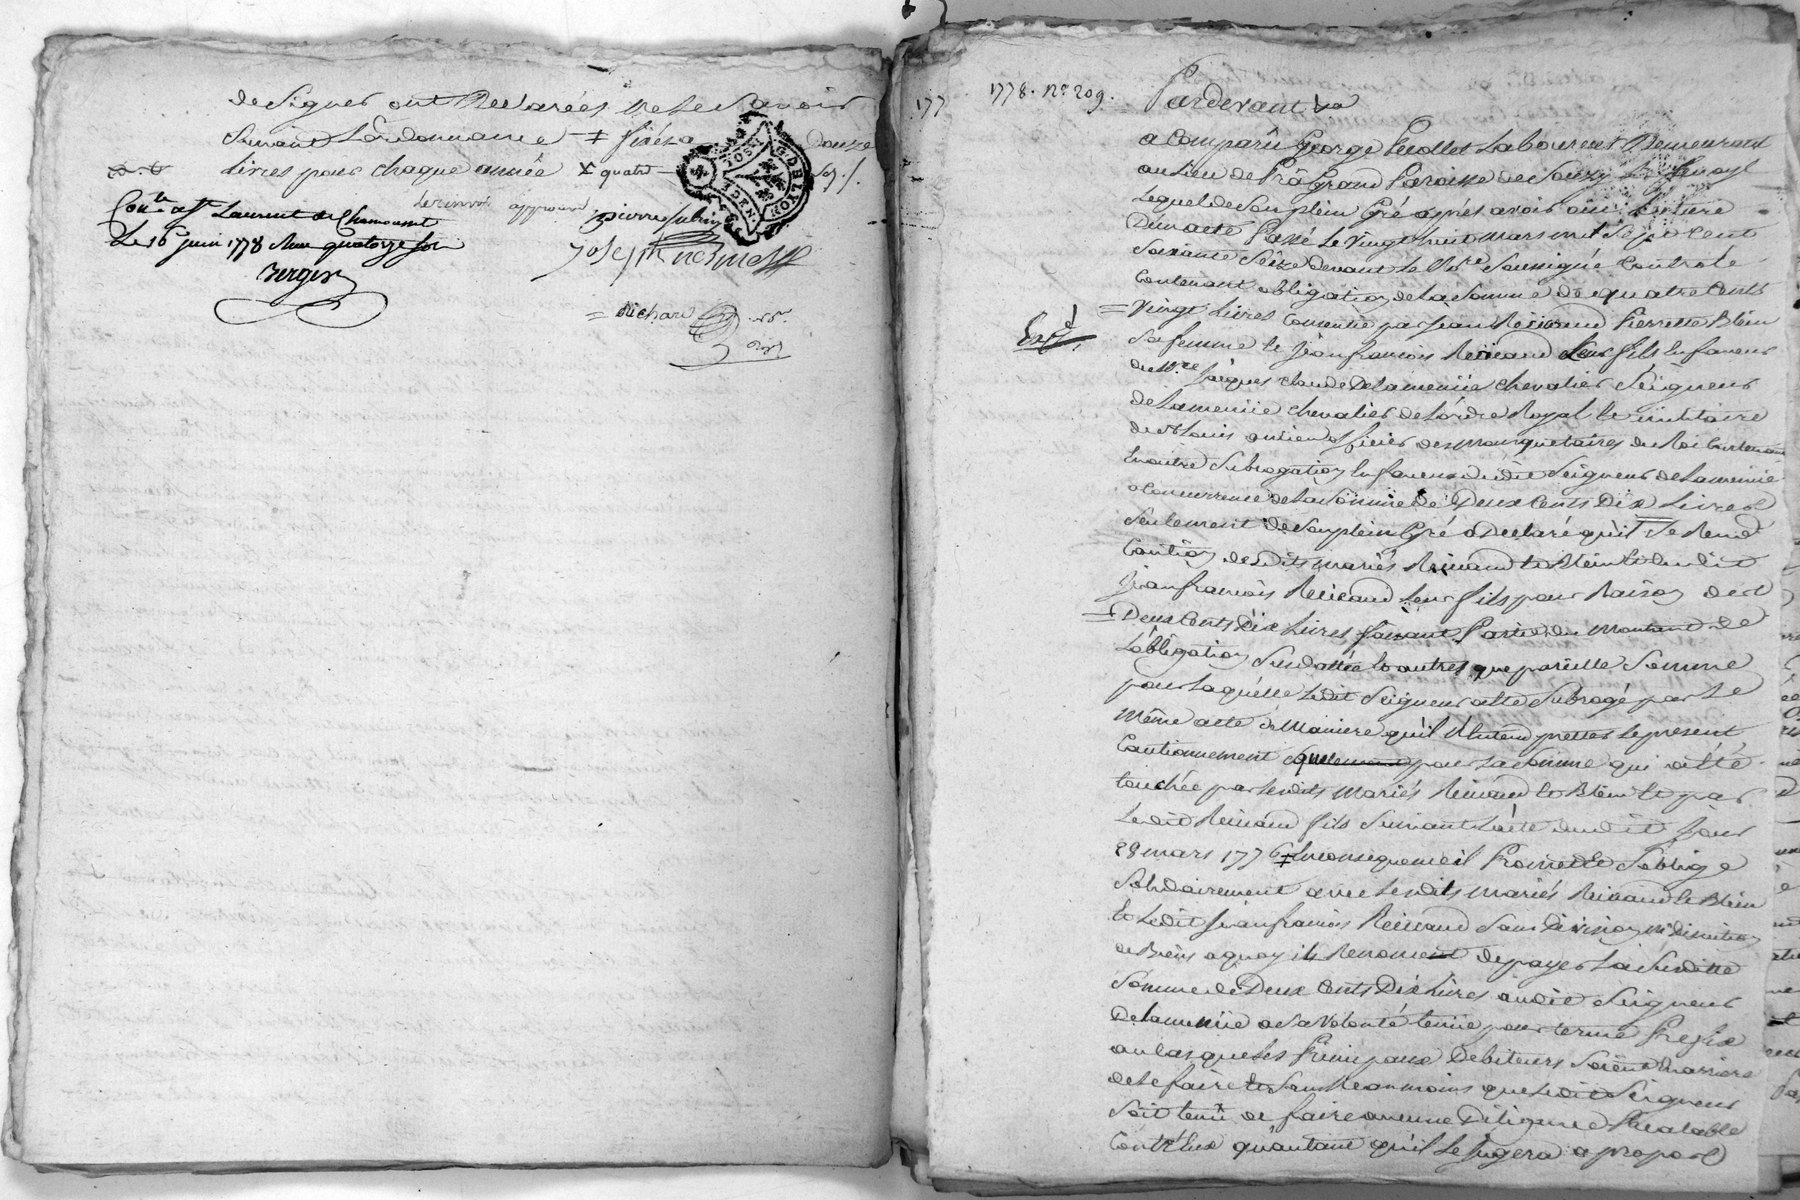 de signer ont declarées ne le savoir
suivant l'ordonnance ╪ fixés a douze
livres pour chaque année X quatre sols
Con.le a St Laurent de Chamousset
Le 16 juin 1778 Reçu quatorze sols
verger
renvoi approuvé pierre
Joseph
= Richard
177
1778. No. 209.
Pardevant
a Comparû George Laboureur Demeurant
au Lieu de Prâ Grand Paroisse de Souzy
Lequel de son plein Gré après avoir oüi lecture
D'un acte Passé Le vingt huit mars mil sept cent
soixante Seize devant le No.re soussigné Controlé
Contenant obligation de la somme de quatre Cents
= vingt Livres Consentie par Jean Pierrette Blein
sa femme et Jean françois leur fils en faveur
de M.re Jacques claude Delamenüe chevalier Seigneur
de Lamenüe chevalier de L'ordre Royal et militaire
de St Louis ancien officier des mousquetaires du Roi Contenant
En outre subrogation En faveur dudit Seigneur de Lamenüe
a Concurrence de la somme de Deux Cents Dix Livres
seulement de son plein Gré a Declaré qu'il se Rend
Caution desdits mariés et Blein et dudit
Jean françois leur fils pour Raison des
= Deux Cents Dix Livres faisant Partie du Montant de
L'obligation susdattée et autres que pareille somme
pour laquelle ledit Seigneur a été subrogé par le
même acte de Maniere qu'il N'entend pretter le present
Cautionnement que pour la somme qui a été
touchée par lesdits mariés et Blein et par
Ledit fils suivant l'acte dudit jour
28 mars 1776 ╪ En consequence il Promet et s'oblige
solidairement avec lesdits mariés et Blein
et Ledit Jean françois sans Division ni discution
de Biens a quoy ils Renoncent de payer la susditte
somme de Deux Cents Dix Livres audit Seigneur
Delamenüe a sa volonté tenüe pour terme Prefix
au Cas que les Principaux Debiteurs soient En arriere
de le faire sans Neanmoins que Ledit Seigneur
soit tenû de faire aucune Diligence Prealable
Contr'Eux qu'autant qu'il Le Jugera a propos